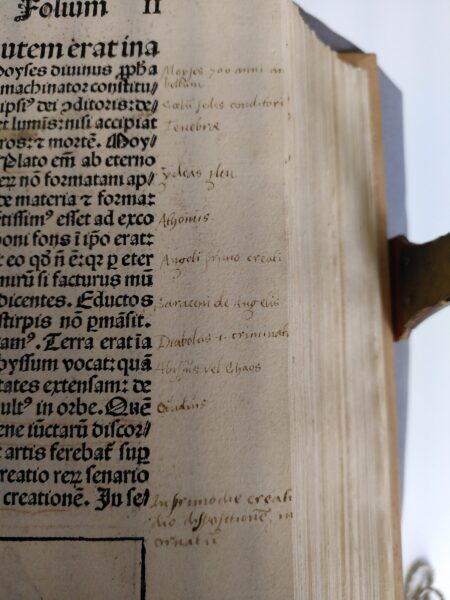 Folium II
utem erat ina
Moyses diuinus ꝓph̄a
machinator constitu/
ipsiꝰ dei ꝯditoris: de/
et lumīs: nisi accipiat
ros: ⁊ mortē. Moy/
Plato em̄ ab eterno
reꝝ nō formatam ap/
de materia ⁊ forma:
tissimꝰ esset ad exco
poni fons ī ip̄o erat:
eo qđ n̄ e: qꝛ ꝑ eter
mirū si facturus mū
dicentes. Eductos
stirpis nō ꝑmāsit.
amꝰ. Terra erat īa
byssum vocat: quā
tates extensam: de
ultꝰ in orbe. Quē
ene iūctarū discor/
artis ferebat̄ suꝑ
reatio reꝝ senario
creationē. In se/
Moyses 700 anni an
bellum
sedes conditori
Tenebræ
Athomis
Angeli primo creati
Saraceni de Angelis
Diabolus i. criminat
Abissus vel Chaos
Ouidius
In primo die creati
dispositionē, in
ornatū